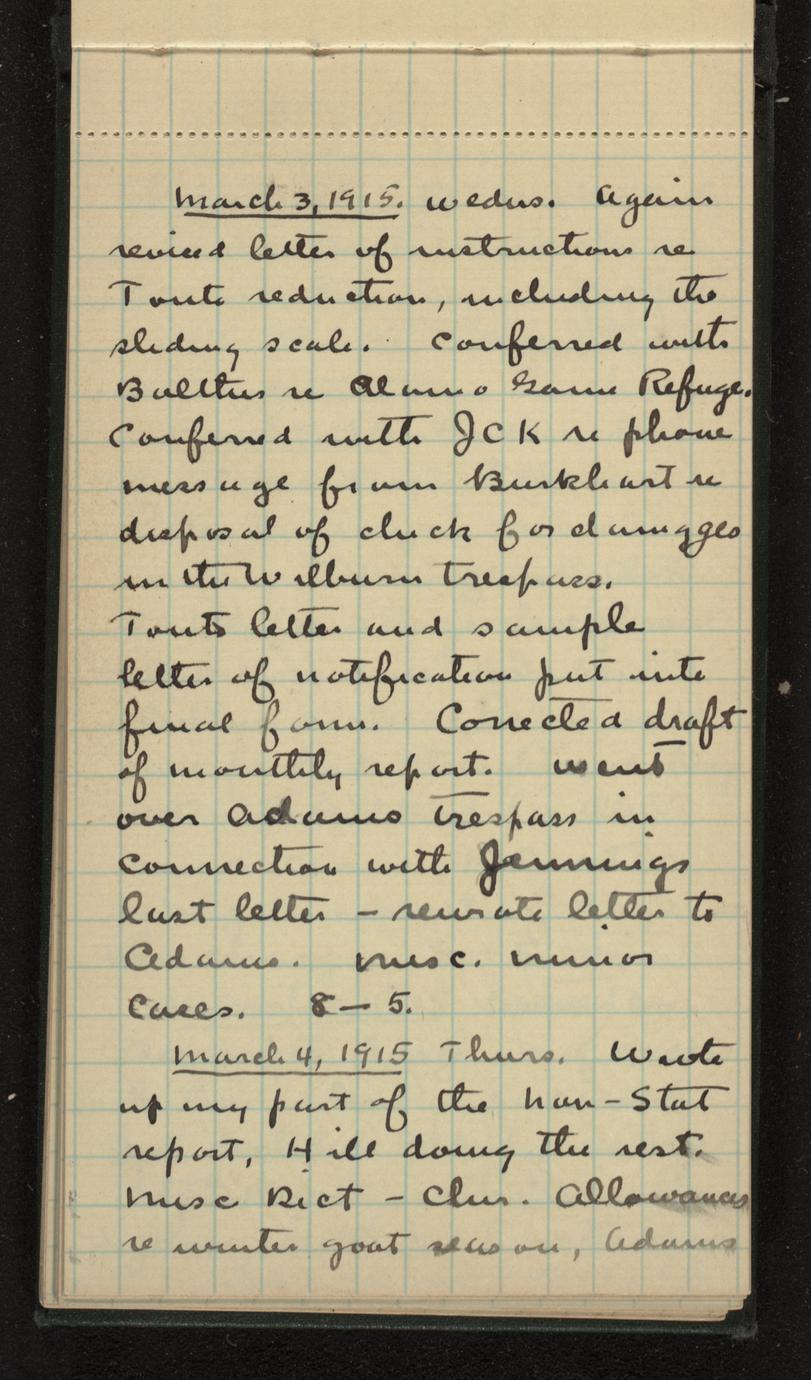 March 3, 1915. Wednes. Again
revised letter of instructions re
Tonto reduction, including the
sliding scale. Conferred with
re Alamo Game Refuge.
Conferred with JCK re phone
message from Burkhart re
disposal of check for damages
in the Wilburn trespass.
Tonto letter and sample
letter of notification put into
final form. Corrected draft
of monthly report. Went
over Adams trespass in
connection with Jennings
last letter - rewrote letter to
Adams. Misc. minor
cases. 8 - 5.
March 4, 1915 Thurs. Wrote
up my part of the Non-Stat
report, Hill doing the rest.
Misc Dict - Chur. Allowances
re winter goat season, Adams